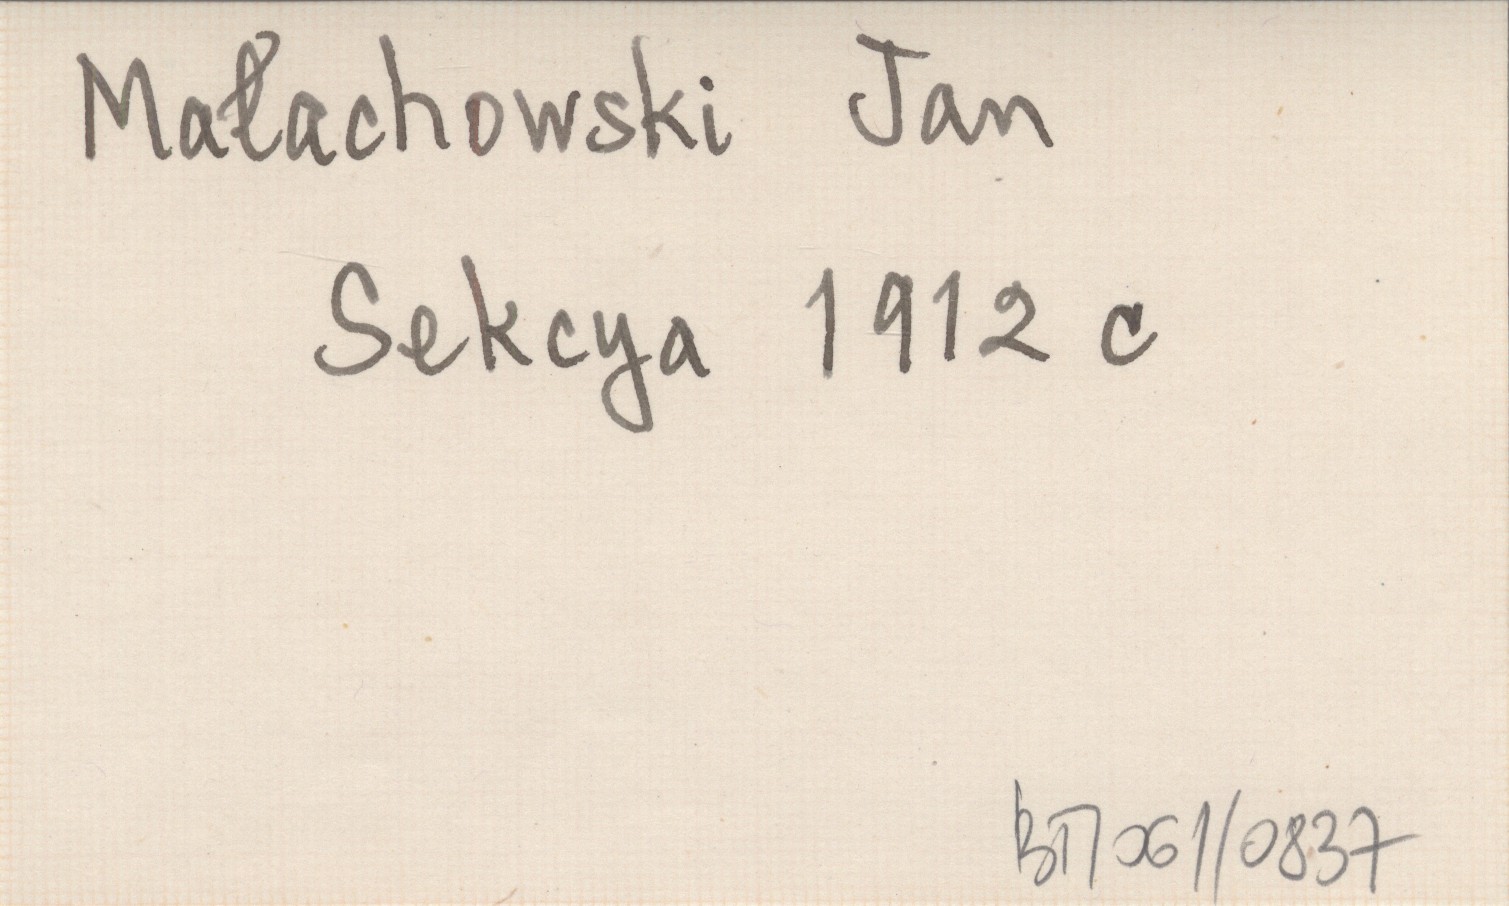 Małachowski Jan
Sekcya 1912 c
BTI 061/0837